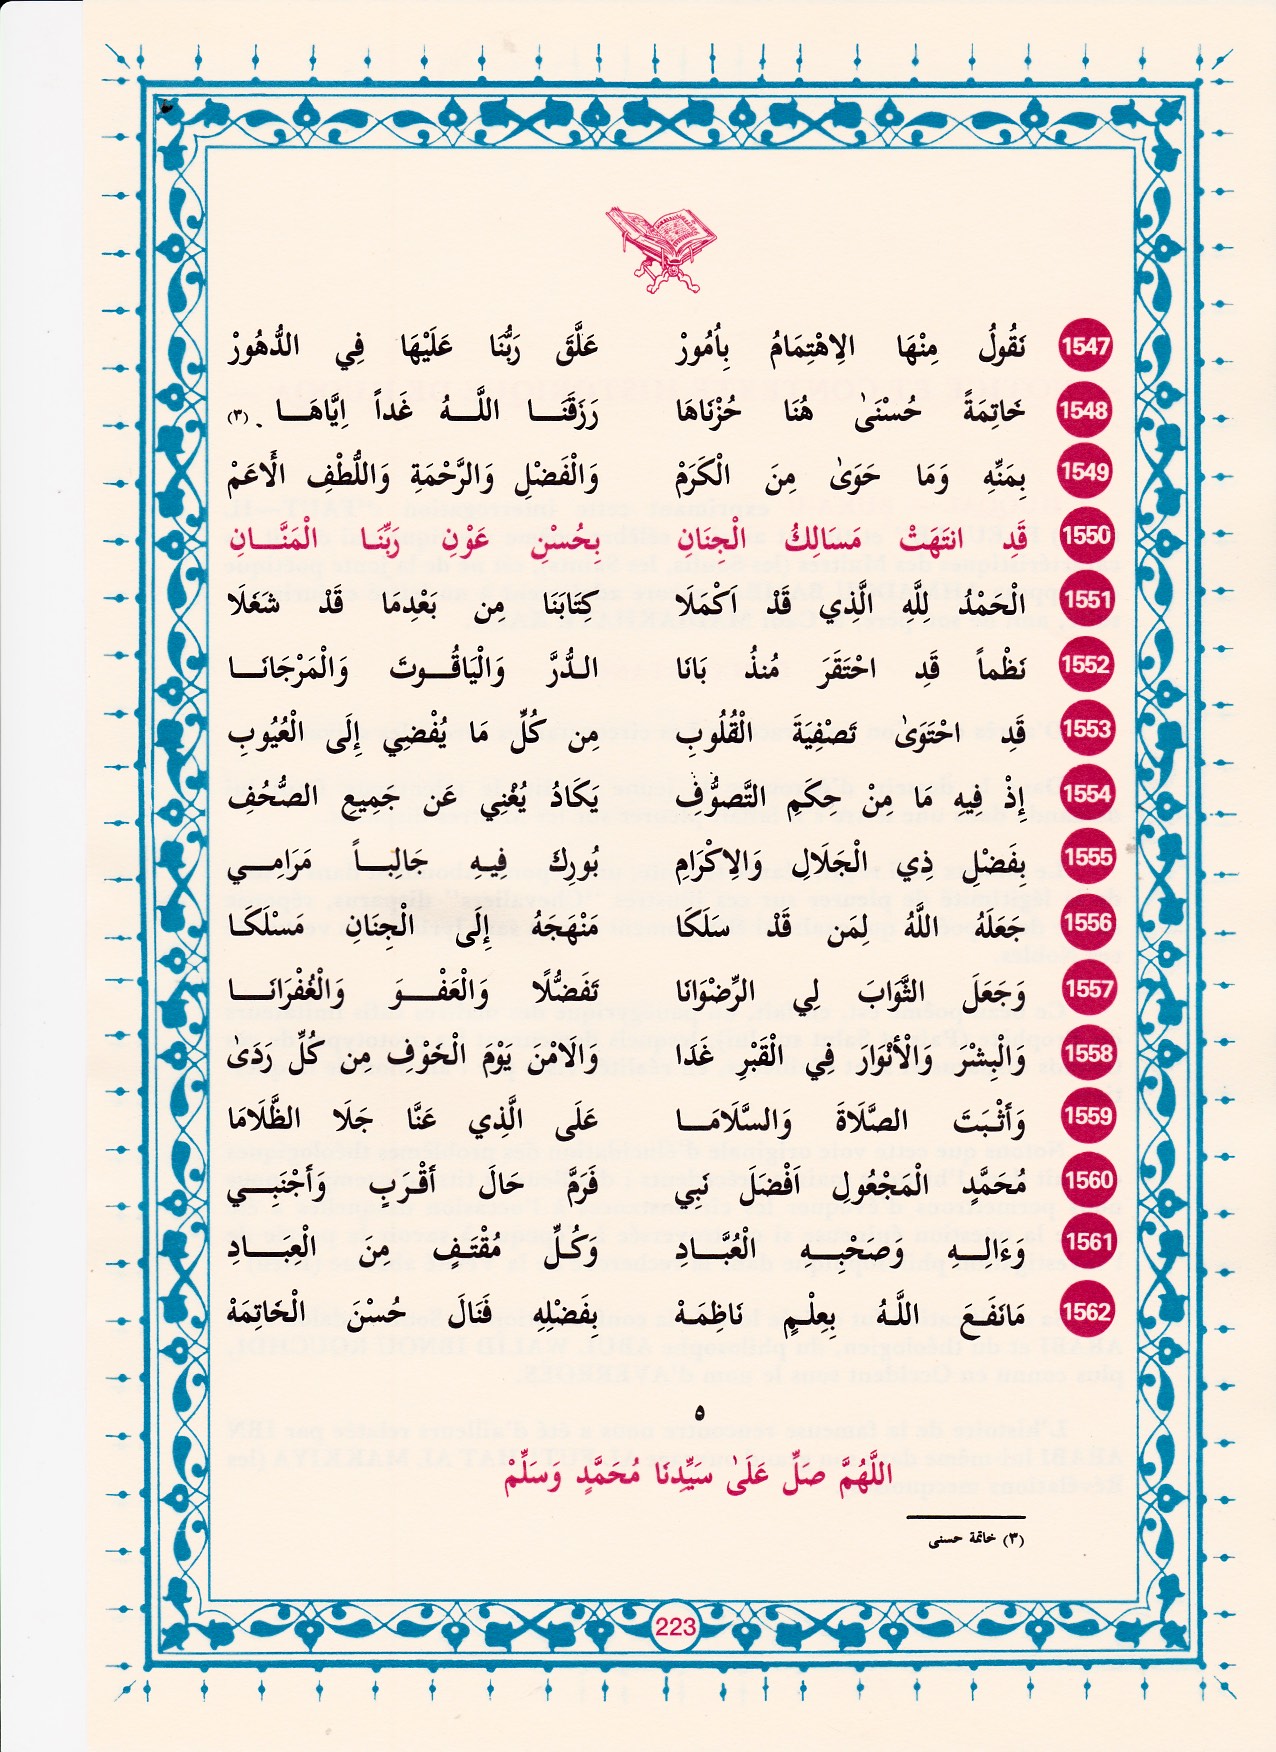 1547 نَقُولُ مِنْهَا الِاهْتِمَامُ بِأُمُورْ عَلَّقَ رَبُّنَا عَلَيْهَا فِي الدُّهُورْ
1548 خَاتِمَةً حُسْنَىٰ هُنَا حُزْنَاهَا رَزَقَنَا اللَّهُ غَداً اِيَّاهَا . (٣)
1549 بِمَنِّهِ وَمَا حَوَىٰ مِنَ الْكَرَمْ وَالْفَضْلِ وَالرَّحْمَةِ وَاللُّطْفِ الَأعَمْ
1550 قَدِ انتَهَتْ مَسَالِكُ الْجِنَانِ بِحُسْنِ عَوْنِ رَبِّنَا الْمَنَّانِ
1551 الْحَمْدُ لِلَّهِ الَّذِي قَدْ اَكْمَلَا كِتَابَنَا مِن بَعْدِمَا قَدْ شَغَلَا
1552 نَظْماً قَدِ احْتَقَرَ مُنذُ بَانَا الدُّرَّ وَالْيَاقُوتَ وَالْمَرْجَانَا
1553 قَدِ احْتَوَىٰ تَصْفِيَةَ الْقُلُوبِ مِن كُلِّ مَا يُفْضِي إِلَى الْعُيُوبِ
1554 إِذْ فِيهِ مَا مِنْ حِكَمِ التَّصوُّفِ يَكَادُ يُغْنِي عَن جَمِيعِ الصُّحُفِ
1555 بِفَضْلِ ذِي الْجَلَالِ وَالِاكْرَامِ بُورِكَ فِيهِ جَالِباً مَرَامِي
1556 جَعَلَهُ اللَّهُ لِمَن قَدْ سَلَكَا مَنْهَجَهُ إِلَى الْجِنَانِ مَسْلَكَا
1557 وَجَعَلَ الثَّوَابَ لِي الرِّضْوَانَا تَفَضُّلًا وَالْعَفْوَ وَالْغُفْرَانَا
1558 وَالْبِشْرَ وَالْأَنْوَارَ فِي الْقَبْرِ غَدَا وَالَامْنَ يَوْمَ الْخَوْفِ مِن كُلِّ رَدَىٰ
1559 وَأَثْبَتَ الصَّلَاةَ وَالسَّلَامَا عَلَى الَّذِي عَنَّا جَلَا الظَّلَامَا
1560 مُحَمَّدٍ الْمَجْعُولِ اَفْضَلَ نَبِي فَرَمَّ حَالَ أَقْرَبٍ وَأَجْنَبِي
1561 وَءَالِهِ وَصَحْبِهِ الْعُبَّادِ وَكُلِّ مُقْتَفٍ مِنَ الْعِبَادِ
1562 مَانَفَعَ اللَّهُ بِعِلْمٍ نَاظِمَهْ بِفَضْلِهِ فَنَالَ حُسْنَ الْخَاتِمَهْ
٥
اللَّهُمَّ صَلِّ عَلَىٰ سَيِّدِنَا مُحَمَّدٍ وَسَلِّمْ
(٣) خاتمة حسنى
223